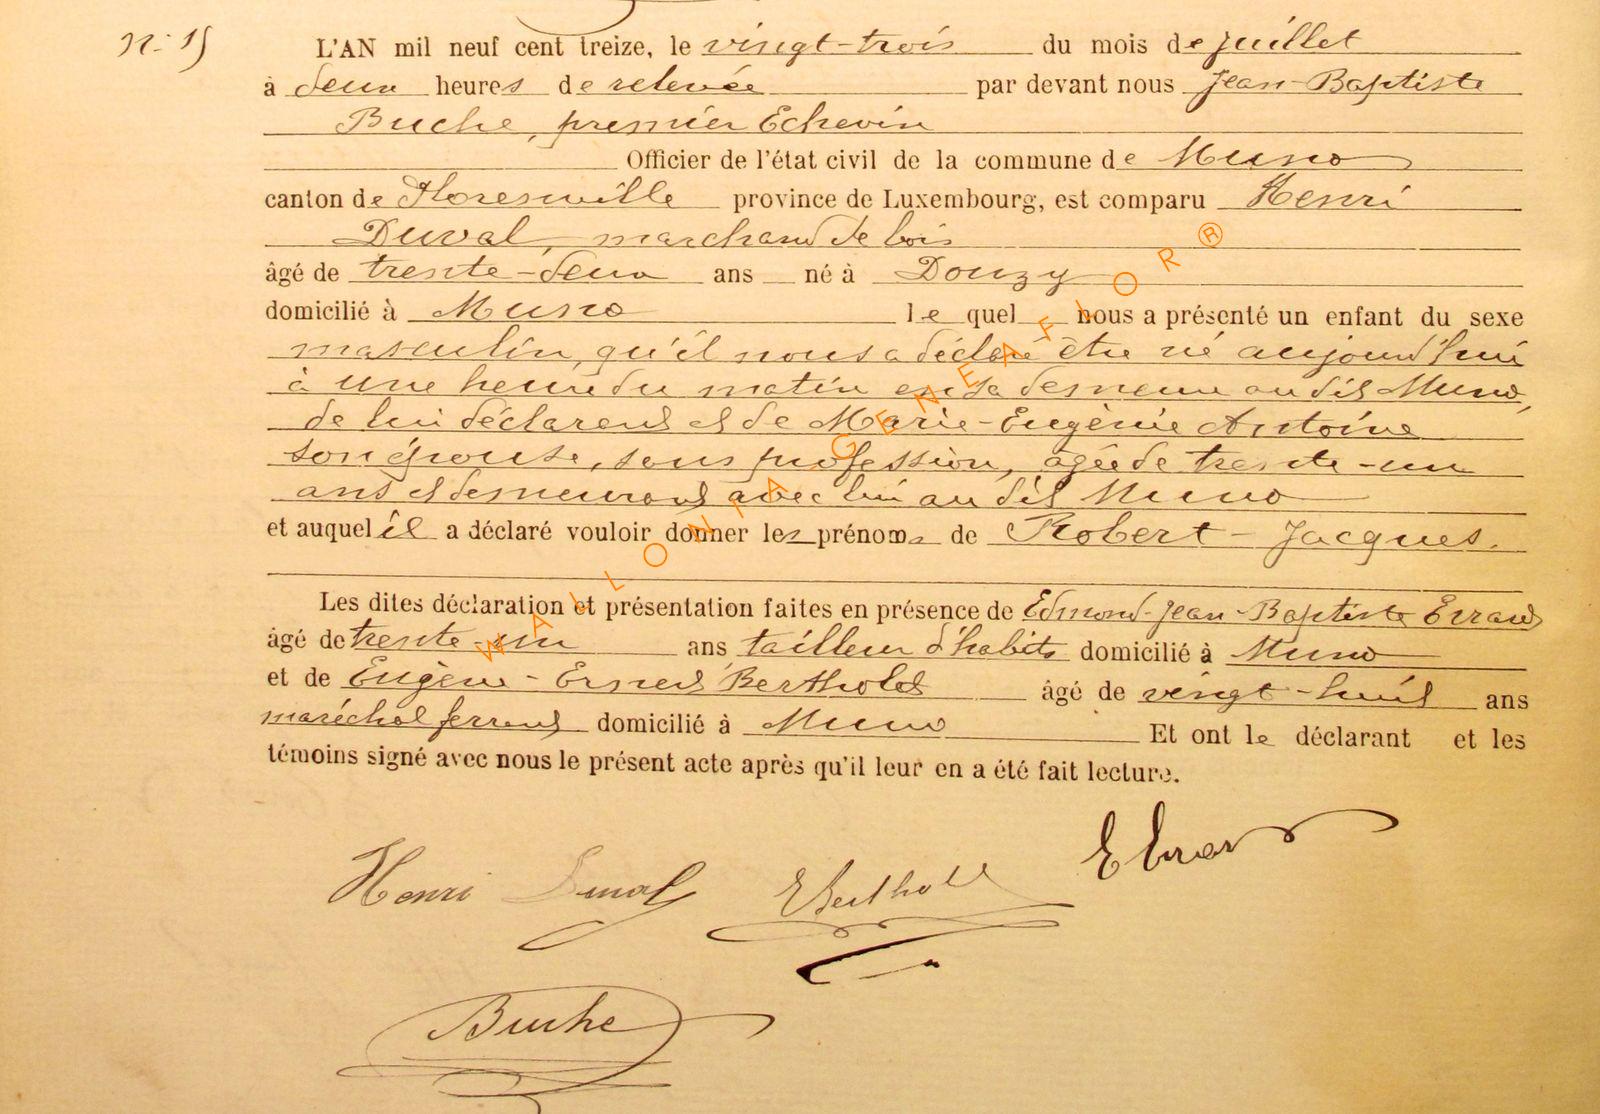 n: 15
L'AN mil neuf cent treize, le vingt-trois du mois de juillet
à deux heures de relevée par devant nous Jean-Baptiste
Buche, premier Echevin
Officier de l'état civil de la commune de Muno
canton de Florenville province de Luxembourg, est comparu Henri
Duval, marchand de bois
âgé de trente-deux ans né à Douzy
domicilié à Muno le quel nous a présenté un enfant du sexe
masculin, qu'il nous a déclaré être né aujourd'hui
à une heure du matin en sa demeure au dit Muno,
de lui déclarant et de Marie-Eugénie Antoine
son épouse, sans profession, âgée de trente-un
ans et demeurant avec lui au dit Muno
et auquel il a déclaré vouloir donner les prénoms de Robert-Jacques.
Les dites déclaration et présentation faites en présence de Edmond-Jean-Baptiste Errard
âgé de trente-un ans tailleur d'habits domicilié à Muno
et de Eugène-Ernest Bertholet âgé de vingt-huit ans
maréchal ferrant domicilié à Muno Et ont le déclarant et les
témoins signé avec nous le présent acte après qu'il leur en a été fait lecture.
E Errard
Henri Duval EBertholet
Buche
WALLONIA GENEAFLOR ®